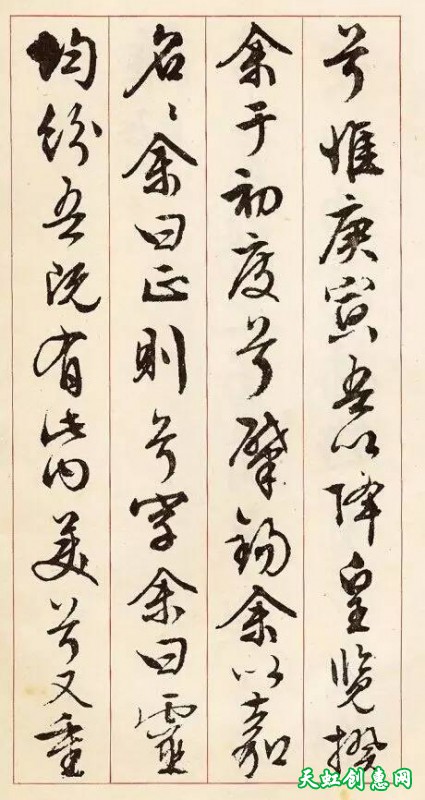 兮惟庚寅吾以降皇覽揆
余于初度兮肇錫余以嘉
名〻余曰正則兮字余曰靈
均紛吾既有此内美兮又重
天虹创惠网